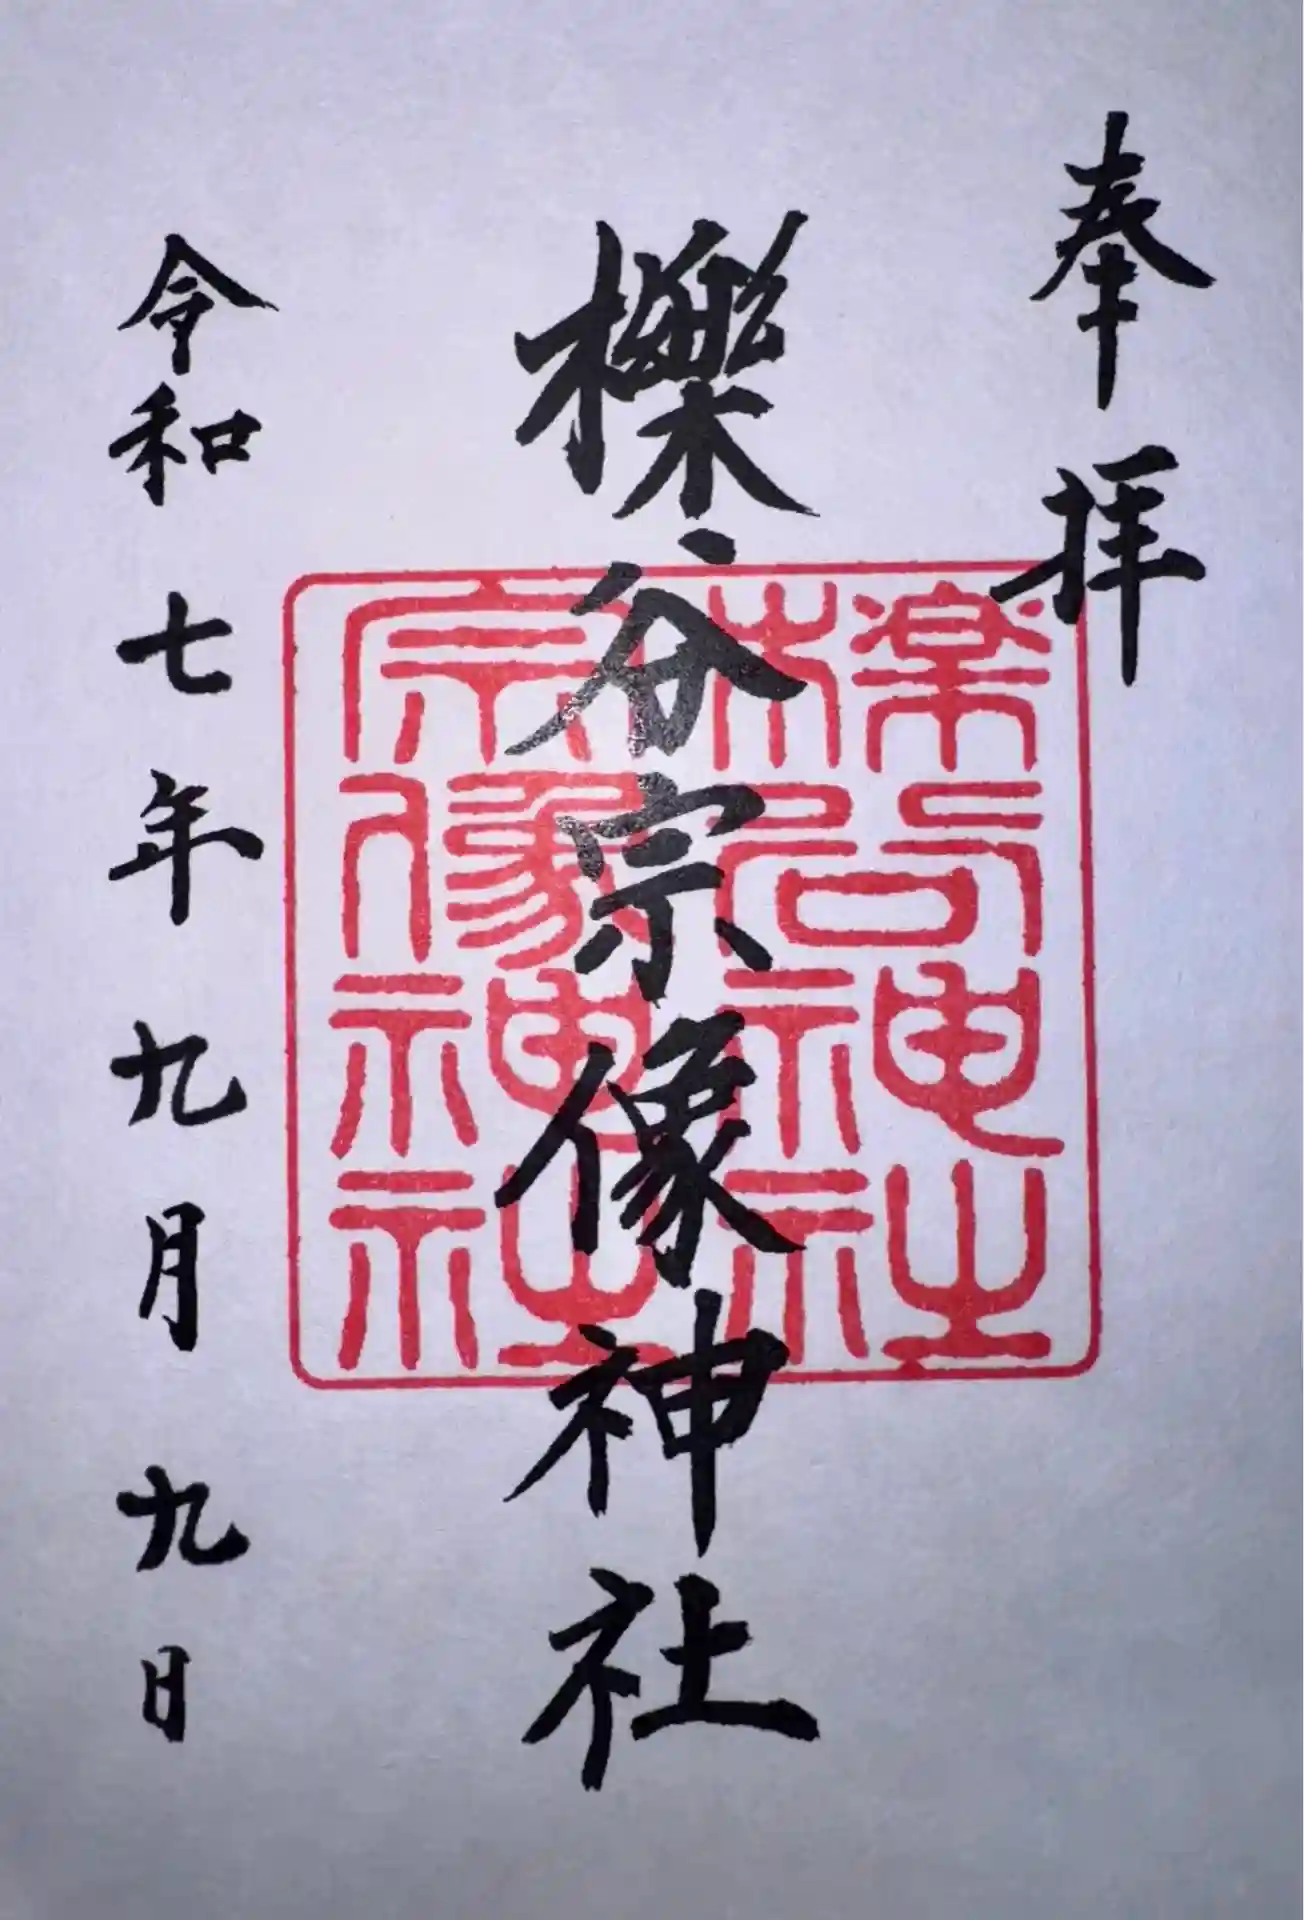 奉拝
櫟谷宗像神社
檪谷神社
宗像神社
令和七年九月九日